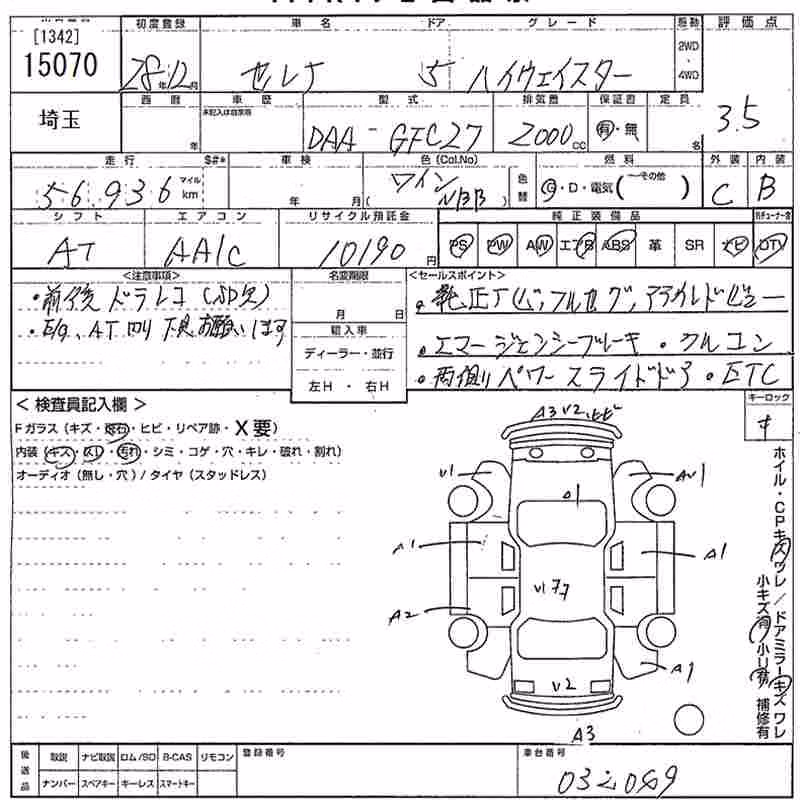 [1342]
15070
初度登録 車名 ドア グレード 駆動 評価点
28年12月 セレナ 5 ハイウェイスター 2WD・4WD
3.5
埼玉
西暦 車歴 型式 排気量 保証書 定員
年 未記入は自家用 DAA-GFC27 2000cc 有・無 名
走行 S#* 車検 色(Col.No) 燃料 外装 内装
56,936 マイル km 年 月 ワイン( NBB ) 色替 G・D・電気( その他 ) C B
シフト エアコン リサイクル預託金 純正装備品
AT AAC 10190円 PS PW AW エアB ABS 革 SR ナビ DTV
<注意事項> 名変期限 <セールスポイント>
・前後ドラレコ(SD欠)
・E/g、AT 下見お願いします
月 日
輸入車
ディーラー・並行
左H・右H
・エマージェンシーブレーキ・クルコン
・両側パワースライドドア・ETC
<検査員記入欄>
Fガラス(キズ・飛石・ヒビ・リペア跡・X要)
内装(キズ・スレ・汚れ・シミ・コゲ・穴・キレ・破れ・割れ)
オーディオ(無し・穴)/タイヤ(スタッドレス)
キーロック
キ
A3 V2 ヒビ
V1
AV1
A1
A1
A1
V177
A2
A1
V2
A3
ホイル・CPキズワレ/ドアミラーキズワレ
小キズ有 小凹有 補修有
後送品 取説 ナビ取説 ロム/SD B-CAS リモコン 登録番号 車台番号
ナンバー スペアキー キーレス スマートキー